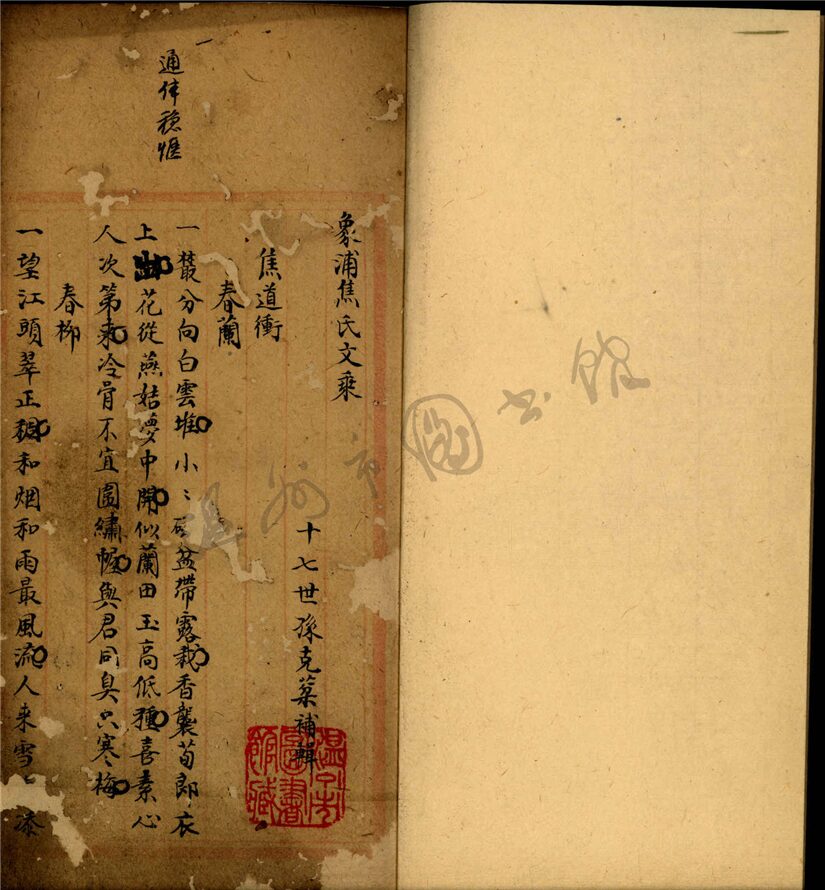 通体稳惬
象浦焦氏文乘
十七世孫克菜補輯
焦道衝
春蘭
一叢分向白雲堆小〻盆帶露栽香襲荀郎衣
上出花從燕姞夢中開似蘭田玉高低種喜素心
人次第来冷骨不宜圍繡幄與君同臭只寒梅
春柳
一望江頭翠正稠和烟和雨最風流人来雪〻添
温州市圖書館藏
温州市图书馆